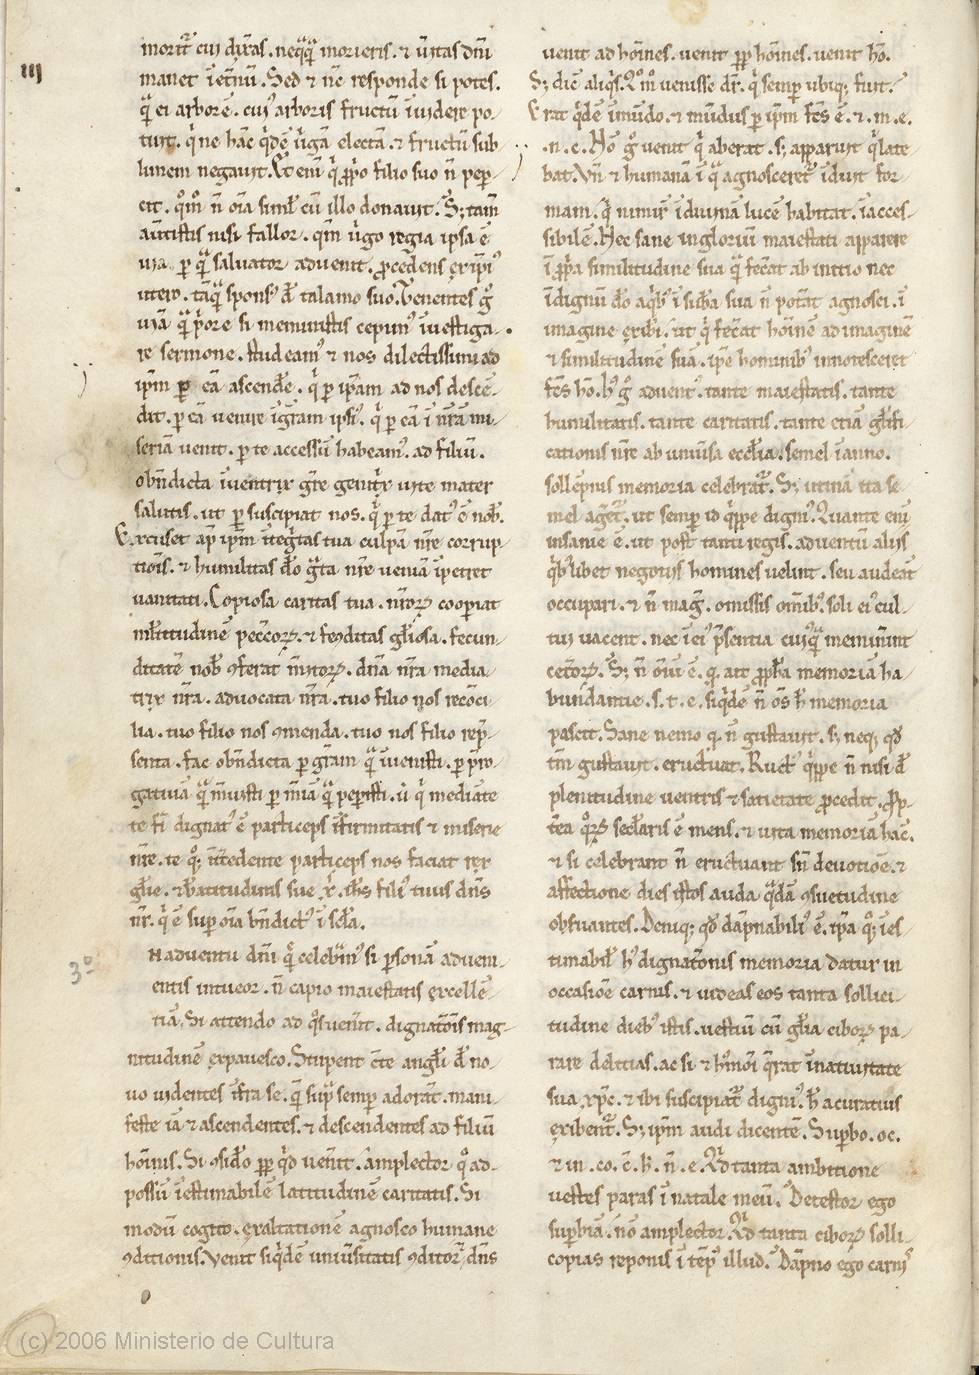 III
morit̃ cui dixas. neq̃q̃ morieris. ⁊ ũitas dñi
manet ĩet̃nũ. Sed ⁊ nc̃ responde si potes.
q̃ ei arborẽ. cui' arboris fructũ ĩuidere po-
tuit. q̃ ne hãc q̃dẽ ũgã electã. ⁊ fructũ sub-
limem negauit. Et eni q̃ p̃p̃o filio suo ñ peper-
cit. q̃m ñ oĩa simł cũ illo donauit. S; tam̃
aũtistis nisi fallor. qm̃ ũgo regia ipsa ẽ
uia. ꝑ q̃ saluator aduenit. ꝓcedens ex ip̃i'
utero. tãq̃ spons' đ talamo suo. Tenentes g̃
uiã q̃ p̃ore si meministis cepim' ĩuestiga-
re sermone. studeam' ⁊ nos dilectissimi ad
ip̃m ꝑ eã ascende. q̃ ꝑ ip̃am ad nos descẽ-
dit. ꝑ eã uenire ĩ gr̃am ipsi'. q̃ ꝑ eã ĩ nr̃ã mi-
seriã uenit. ꝑ te accessũ habeam'. ad filiũ.
obñdicta ĩuentrix gr̃e genitx̃ uite mater
salutis. ut ꝑ te suscipiat nos. q̃ ꝑ te dat' ẽ nob̃.
Excuset ap̃ ip̃m ĩteg̃tas tua culpã nr̃e corrup-
tiõis. ⁊ humilitas đo g̃ta nr̃e ueniã ĩpetret
uanitati. Copiosa caritas tua. nr̃oꝝ cooperiat
mĩtitudinẽ pecc̃oꝝ. ⁊ fecũditas gl̃iosa. fecun-
ditatẽ nob̃ ꝯferat m̃itoꝝ. dña nr̃a media-
trix nr̃a. aduocata nr̃a. tuo filio nos recõci-
lia. tuo filio nos ꝯmenda. tuo nos filio rep̃-
senta. fac obñdicta ꝑ gr̃am q̃ ĩuenisti. ꝑ p̃ro-
gatiuã q̃ m̃uisti ꝑ m̃iã q̃ peꝑisti. ũ q̃ mediãte
te fi'i dignat' ẽ particeps ĩfirmitatis ⁊ miserie
nr̃e. te q; ĩt̃cedente participes nos faciat rex̃
gl̃ie. ⁊ b̃atitudinis sue. x̃. ih̃s fili' tuus dñs
nr̃. q̃ ẽ suꝑ oĩa bñdict' ĩ sc̃la.
3º
N aduentu dñi q̃ celeb̃m' si ꝑsonã adueni-
entis intueor. ñ capio maiestatis excellẽ-
tiã. Si attendo ad q̃s uenit. dignatõis mag-
nitudinẽ expauesco. Stupent c̃te angl̃i đ no-
uo uidentes ĩfra se. q̃ sup̃ semꝑ adorãt. mani-
feste iã ⁊ ascendentes. ⁊ descendentes ad filiũ
hõinis. Si ꝯsid̃o pꝑ q̃d uenit. amplector q̃ ad-
possũ ĩestimabilẽ latitudinẽ caritatis. Si
modũ cogito. exaltationẽ agnosco humane
ꝯditionis. Venit siq̃dẽ uniũsitatis ꝯditor dñs
uenit ad hõines. uenit pꝑ hõines. uenit hõ.
S; dic̃ aliq̃s. Q̃m uenisse dr̃. q̃ semꝑ ubiq; fuit.
Erat q̃dẽ ĩ mũdo. ⁊ mũdus ꝑ ip̃m fc̃s ẽ. ⁊ .m. e.
.n. c. Nõ g̃ uenit q̃ aberat. s; apparuit q̃ late-
bat. Vñ ⁊ humanã ĩ q̃ agnosceret̃ ĩduit for-
mam. q̃ nimir̃ ĩ diuinã lucẽ habitat. ĩacces-
sibilẽ. Nec sane ingloriũ maiestati apparere
ĩ p̃p̃a similitudine sua q̃ fec̃at ab initio nec
ĩdignũ đo a q̃b' ĩ sub̃a sua ñ pot̃at agnosci. ĩ
imagine exiberi. ut q̃ fec̃at hõinẽ ad imaginẽ
⁊ similitudinẽ suã. ip̃e hominib' innotesceret
fc̃s hõ. h' g̃ aduent'. tante maiestatis. tante
humilitatis. tante caritatis. tante etiã gl̃ifi-
cationis nr̃e ab uniũsa eccl̃ia. semel ĩ anno.
sollẽpnis memoria celebrat̃. S; utinã ita se-
mel aget̃. ut semꝑ id q̃ppe dign'. Quante eni
insanie ẽ. ut post tanti regis. aduentũ alijs
q̃b'libet negotijs homines uelint. seu audeãt
occupari. ⁊ ñ mag̃. omissis omib'. soli ei' cul-
tui uacent. nec ĩ ei' p̃sentia cuiq̃ meminint
cet̃oꝝ. S; ñ oĩu ẽ. q. ait ꝓph̃a memoriã ha-
bundantie. s. t. e. siq̃dẽ ñ os h̃ memoria
pascit. Sane nemo q. ñ gustauit. s; neq; qđ
tm̃ gustauit. eructuat. Ruct' q̃ppe ñ nisi đ
plenitudine uentris ⁊ satietate ꝓcedit. Ꝓp-
t̃ea q̃ꝝ sec̃laris ẽ mens. ⁊ uita memoriã hãc.
⁊ si celebrant ñ eructuant sñ deuotiõe. ⁊
affectione dies istos auda q̃dã ꝯsuetudine
obs̃uantes. Deniq; qđ dãpnabili' ẽ. ip̃a q; ĩes-
timabil' h' dignationis memoria datur in
occasiõe carnis. ⁊ uideas eos tanta sollici-
tudine dieb' istis. uestiũ cũ gl̃ia ciboꝝ pa-
rare delitias. ac si ⁊ h'moi q̃rat ĩ natiuitate
sua xp̃c. ⁊ ibi suscipiat̃ dign'. h̃ acuratius
exibent̃. S; ip̃m audi dicentẽ. Suꝑbo. oc.
⁊ in. co. c̃. h̃. ñ. e. Q̃d tanta ambitione
uestes paras ĩ natale meũ. Detestor ego
suꝑbiã. nõ amplector. Q̃d tanta ciboꝝ solli-
copias reponis ĩ temp' illud. Dãpno ego carni'
(c) 2006 Ministerio de Cultura